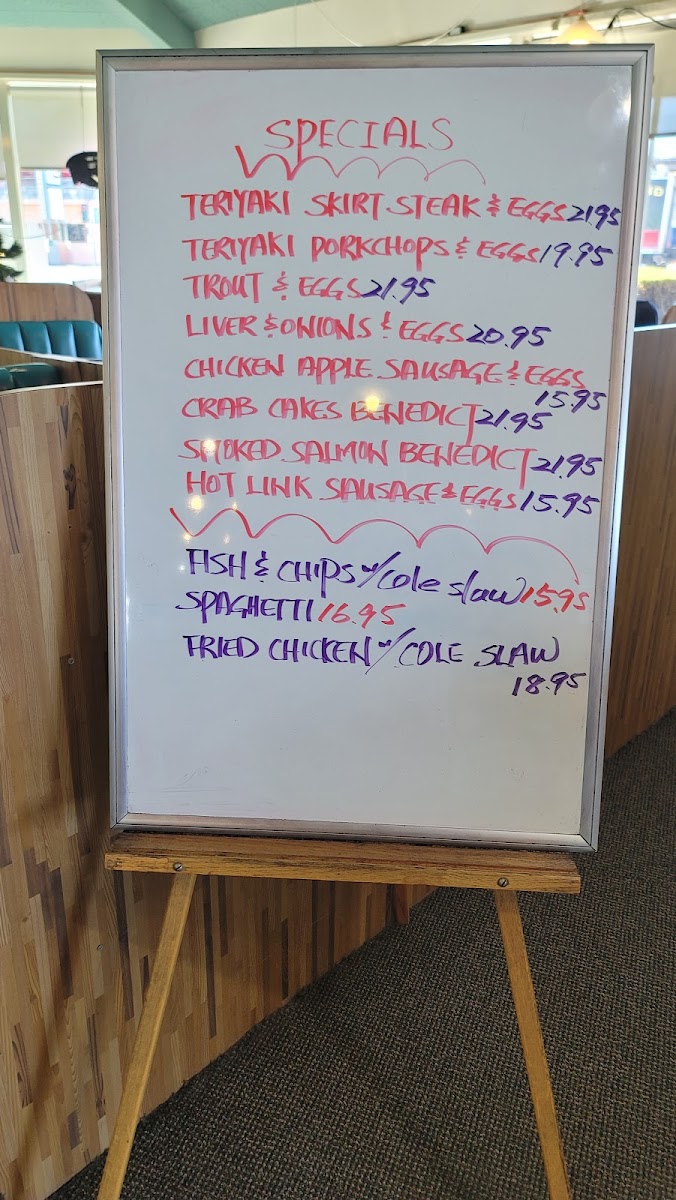 SPECIALS
TERIYAKI SKIRT STEAK & EGGS 21.95
TERIYAKI PORKCHOPS & EGGS 19.95
TROUT & EGGS 21.95
LIVER & ONIONS & EGGS 20.95
CHICKEN APPLE SAUSAGE & EGGS
15.95
CRAB CAKES BENEDICT 21.95
SMOKED SALMON BENEDICT 21.95
HOT LINK SAUSAGE & EGGS 15.95
FISH & CHIPS w/ Cole slaw 15.95
SPAGHETTI 16.95
FRIED CHICKEN w/ COLE SLAW
18.95